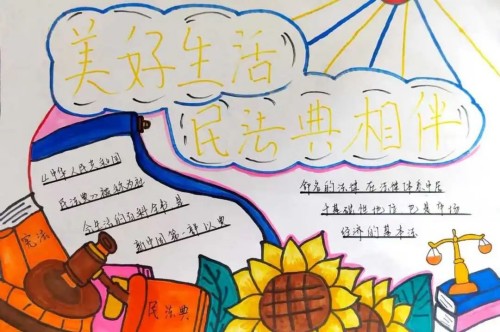 美好生活
民法典相伴
《中华人民共和国
民法典》被称为社
会生活的百科全书 是
新中国第一部以典
命名的法律 在法律体系中居
于基础性地位 也是市场
经济的基本法
宪法
民法典